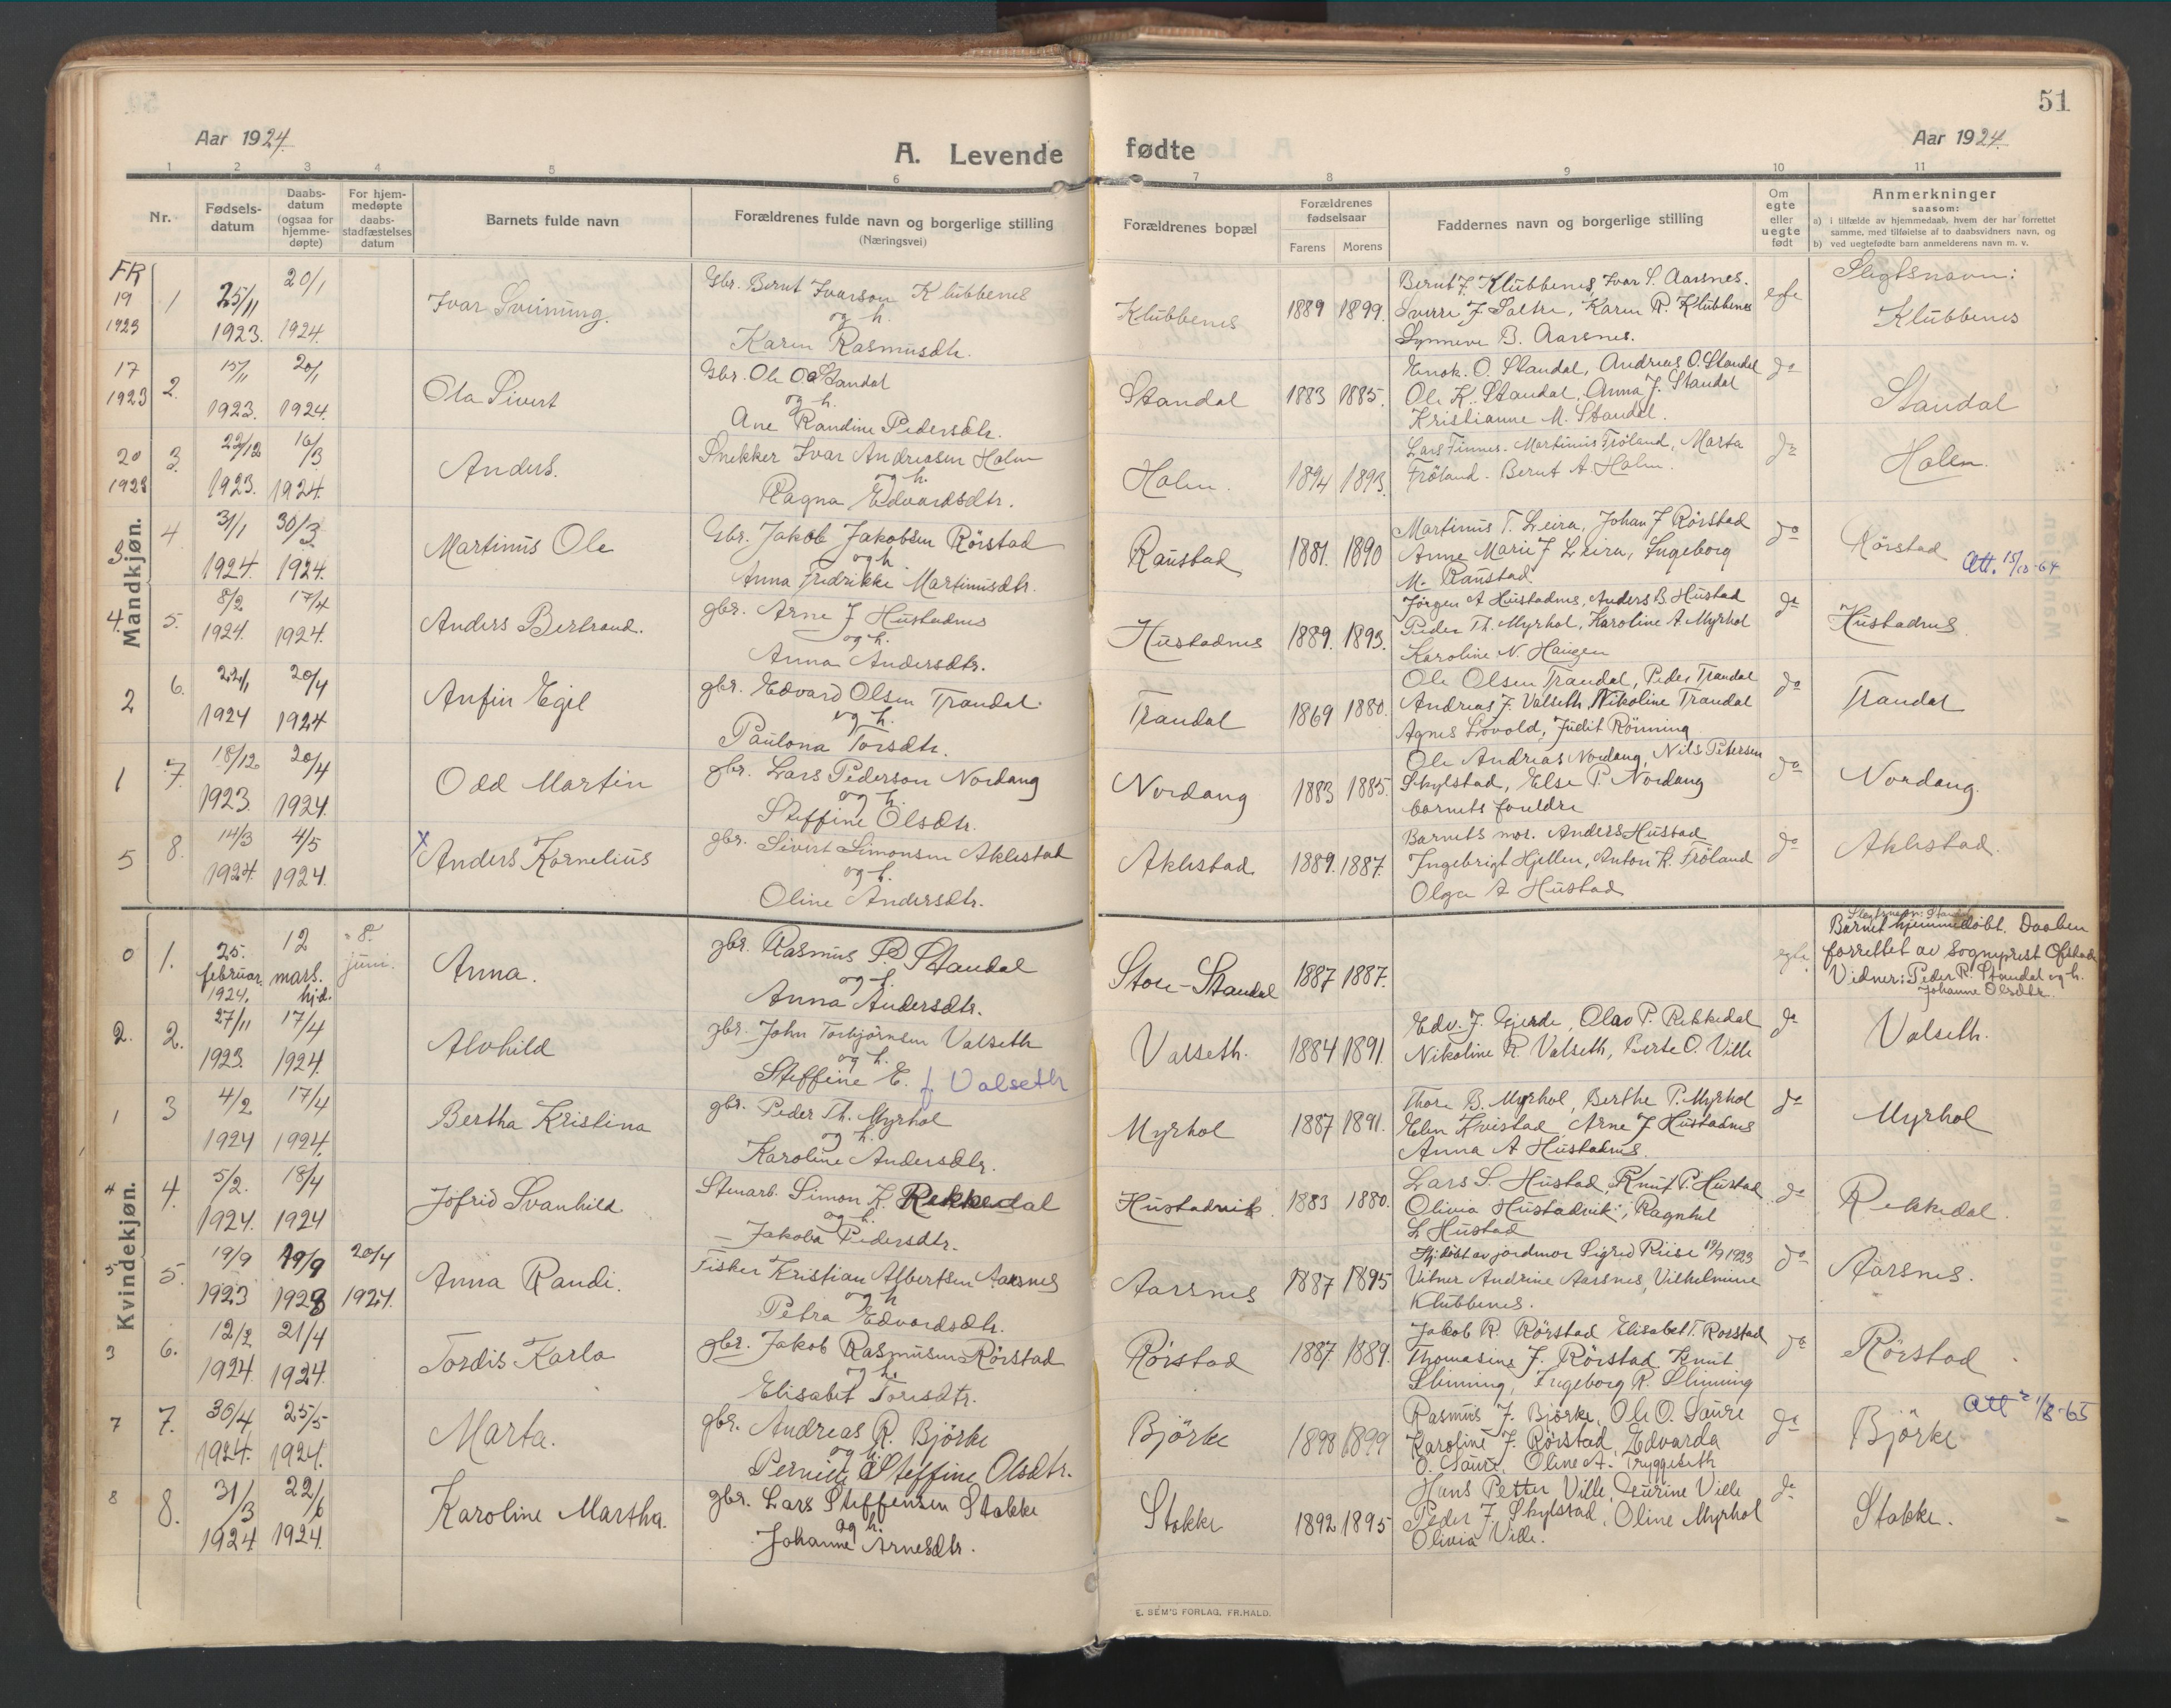 51
Aar 1924.
A. Levende
fødte
Aar 1924.
1 2 3 4 5 6 7 8 9 10 11
Nr.
Fødsels-
datum
Daabs-
datum
(ogsaa for
hjemme-
døpte)
For hjem-
medøpte
daabs-
stadfæstelses
datum
Barnets fulde navn
Forældrenes fulde navn og borgerlige stilling
(Næringsvei)
Forældrenes bopæl
Forældrenes
fødselsaar
Farens Morens
Faddernes navn og borgerlige stilling
Om
egte
eller
uegte
født
Anmerkninger
saasom:
a) i tilfælde av hjemmedaab, hvem der har forrettet
samme, med tilføielse af to daabsvidners navn, og
b) ved uegtefødte barn anmelderens navn m. v.
Mandkjøn.
FR
19
1923
1
25/11
1923.
20/1
1924.
Ivar Sveinung.
Gbr. Bernt Ivarson Klubbenes
og h.
Karen Rasmusdtr.
Klubbenes
1889 1899.
Bernt J. Klubbenes, Ivar S. Aarsnes.
Sverre J. Sætre, Karen R. Klubbenes
Synneve B. Aarsnes.
egte
Slegtsnavn:
Klubbenes
17
1923
2.
15/11
1923.
20/1
1924.
Ola Sivert
Gbr. Ole O. Standal
og h.
Ane Randine Pedersdtr.
Standal
1883 1885.
Enok. O. Standal, Andreas O. Standal
Ole K. Standal, Anna J. Standal
Kristianne M. Standal.
do
Standal
20
1923
3.
29/12
1923.
16/3
1924.
Anders.
Snekker Ivar Andreasen Holen
og h.
Ragna Edvardsdtr.
Holen.
1894 1893.
Lars Finnes. Martinus Fröland, Marta
Fröland. Bernt A. Holen.
do
Holen.
3.
4
31/1
1924.
30/3
1924.
Martinus Ole
Gbr. Jakob Jakobsen Rörstad
og h
Anna Fredrikke Martinusdtr.
Raustad
1881. 1890
Martinus T. Leira, Johan J Rörstad
Anne Marie J Leira, Ingeborg
M. Raustad.
do
Rörstad
Att. 15/10-64
4.
5.
8/2
1924.
17/4
1924.
Anders Bertrand.
gbr. Arne J Hustadnes
og h.
Anna Andersdtr.
Hustadnes
1889. 1893.
Jørgen A Hustadnes, Anders B. Hustad
Peder Th. Myrhol, Karoline A Myrhol
Karoline N. Haugen
do
Hustadnes
2
6.
22/1
1924
20/4
1924
Anfin Egil
gbr. Edvard Olsen Trandal.
og h.
Paulona Torsdtr.
Trandal
1869 1880.
Ole Olsen Trandal, Peder Trandal
Andreas J. Valseth, Nikoline Trandal
Agnes Lövold, Judit Rönning
do
Trandal
1
7.
18/12
1923.
20/4
1924.
Odd Martin
gbr. Lars Pederson Nordang
og h.
Steffine Olsdtr.
Nordang
1883 1885.
Ole Andreas Nordang, Nils Petersen
Skylstad, Else P. Nordang
barnets foreldre
do
Nordang.
5
8.
14/3
1924.
4/5
1924.
x Anders Kornelius
gbr. Sivert Simonsen Aklestad
og h.
Oline Andersdtr.
Aklestad
1889. 1887.
Barnets mor. Anders Hustad
Ingebrigt Hjellen, Anton K. Fröland
Olga A Hustad
do
Aklestad.
Kvindekjøn.
0
1.
25.
februar
1924.
12
mars.
hjd.
8.
juni.
Anna.
gbr. Rasmus P. Standal
og h.
Anna Andersdtr.
Store-Standal
1887 1887.
egte.
Slegtsnavn: Standal
Barnet hjemmedöbt. Daaben
forrettet av Sogneprest Ofstad
Vidner: Peder R. Standal og h.
Johanne Olsdtr.
2.
2.
27/11
1923.
17/4
1924.
Alvhild
gbr. John Torbjörnsen Valseth
og h.
Steffine E. f. Valseth
Valseth.
1884 1891.
Edv. J. Gjerde, Olav P. Rekkedal
Nikoline R. Valseth, Berte O. Ville
do
Valseth.
1
3
4/2
1924
17/4
1924.
Bertha Kristina
gbr. Peder Th. Myrhol
og h.
Karoline Andersdtr.
Myrhol
1887 1891.
Thore B. Myrhol, Berthe P. Myrhol
Elen Kvistad, Arne J Hustadnes
Anna A Hustadnes.
do
Myrhol
4
4.
5/2.
1924.
18/4
1924
Jofrid Svanhild.
Stenarb. Simon K. Rekkedal
og h.
Jakoba Pedersdtr.
Hustadvik
1883 1880.
Lars S. Hustad, Knut P. Hustad
Olivia Hustadvik, Ragnhil
L Hustad
do
Rekkedal.
5
5.
19/9
1923
19/9
1923
20/4
1924.
Anna Randi.
Fisker Kristian Albertsen Aarsnes
og h
Petra Edvardsdtr.
Aarsnes
1887 1895
Hj.döbt av jordmor Sigrid Riise 19/9 1923
Vitner Andrine Aarsnes, Vilhelmine
Klubbenes.
do
Aarsnes.
3
6.
12/2
1924.
21/4
1924.
Tordis Karla
gbr. Jakob Rasmusen Rörstad
og h.
Elisabet Toresdtr.
Rörstad
1887. 1889.
Jakob R. Rörstad Elisabet T. Rorstad
Thomasine J. Rörstad, Knut
Slinning, Ingeborg R. Slinning
do
Rörstad
7
7.
30/4
1924.
25/5
1924.
Marta.
gbr. Andreas R. Björke
og h.
Pernille Steffine Olsdtr.
Björke
1898 1899
Rasmus J. Björke, Ole O. Saure
Karoline J. Rörstad, Edvarda
O. Saure, Oline A. Tryggeseth
do
Att 11/8-65
Björke
8
8.
31/3
1924
22/6
1924.
Karoline Martha.
gbr. Lars Steffensen Stokke
og h.
Johanne Arnesdtr.
Stokke
1892 1895
Hans Petter Ville, Gurine Ville
Peder J. Skylstad, Oline Myrhol
Olivia Ville.
do
Stokke.
E. SEM'S FORLAG, FR.HALD.